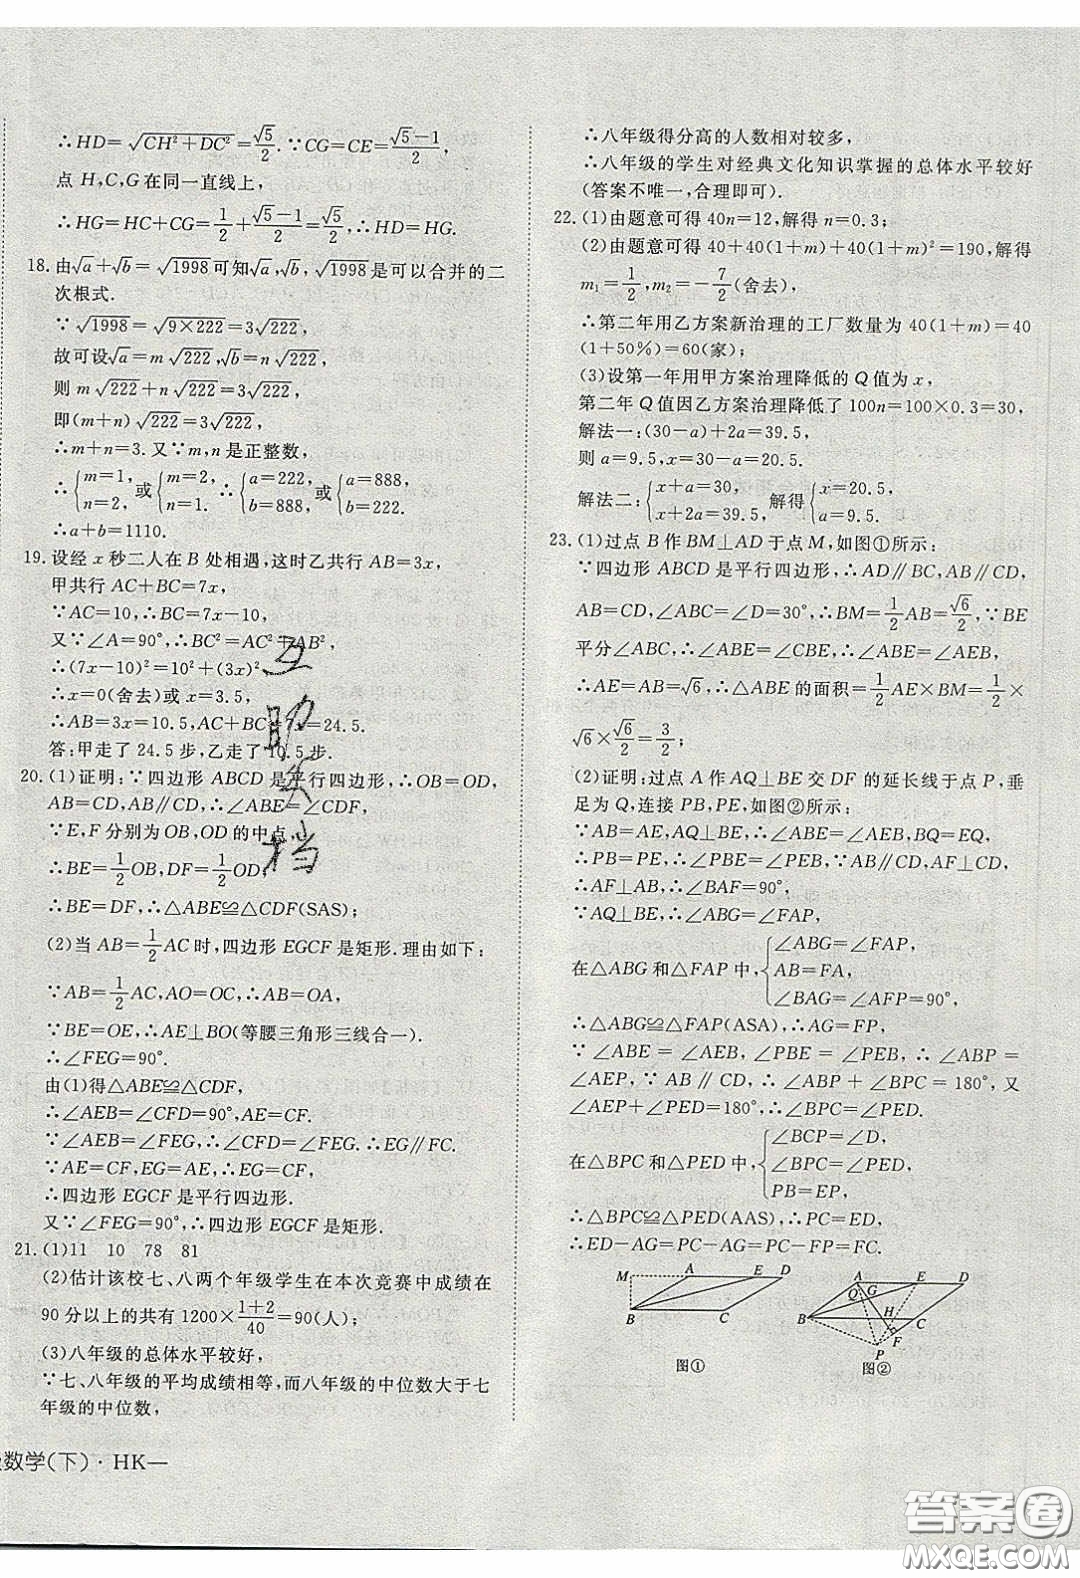 ∴HD=√(CH²+DC²)=√5/2.∵CG=CE=(√5-1)/2,
点 H,C,G在同一直线上,
∴HG=HC+CG=1/2+(√5-1)/2=√5/2,∴HD=HG.
18.由√a+√b=√1998可知√a,√b,√1998是可以合并的二
次根式.
∵√1998=√(9×222)=3√222,
故可设√a=m√222,√b=n√222,
则 m√222+n√222=3√222,
即(m+n)√222=3√222,
∴m+n=3.又∵m,n是正整数,
∴{m=1, n=2,或{m=2, n=1.∴{a=222, b=888,或{a=888, b=222.
∴a+b=1110.
19.设经 x 秒二人在 B 处相遇,这时乙共行 AB=3x,
甲共行 AC+BC=7x,
∵AC=10,∴BC=7x-10,
又∵∠A=90°,∴BC²=AC²+AB²,
∴(7x-10)²=10²+(3x)²,
∴x=0(舍去)或 x=3.5,
∴AB=3x=10.5,AC+BC=7x=24.5.
答:甲走了 24.5 步,乙走了 10.5 步.
20.(1)证明:∵四边形 ABCD 是平行四边形,∴OB=OD,
AB=CD,AB∥CD,∴∠ABE=∠CDF,
∵E,F 分别为 OB,OD 的中点,
∴BE=1/2OB,DF=1/2OD,
∴BE=DF,∴△ABE≌△CDF(SAS);
(2)当 AB=1/2AC 时,四边形 EGCF 是矩形.理由如下:
∵AB=1/2AC,AO=OC,∴AB=OA,
∵BE=OE,∴AE⊥BO(等腰三角形三线合一).
∴∠FEG=90°.
由(1)得△ABE≌△CDF,
∴∠AEB=∠CFD=90°,AE=CF.
∵∠AEB=∠FEG,∴∠CFD=∠FEG.∴EG∥FC.
∵AE=CF,EG=AE,∴EG=CF.
∴四边形 EGCF 是平行四边形.
又∵∠FEG=90°,∴四边形 EGCF 是矩形.
21.(1)11 10 78 81
(2)估计该校七、八两个年级学生在本次竞赛中成绩在
90 分以上的共有 1200×(1+2)/40=90(人);
(3)八年级的总体水平较好,
∵七、八年级的平均成绩相等,而八年级的中位数大于七
年级的中位数,
∴八年级得分高的人数相对较多,
∴八年级的学生对经典文化知识掌握的总体水平较好
(答案不唯一,合理即可).
22.(1)由题意可得 40n=12,解得 n=0.3;
(2)由题意可得 40+40(1+m)+40(1+m)²=190,解得
m₁=1/2,m₂=-7/2(舍去),
∴第二年用乙方案新治理的工厂数量为 40(1+m)=40
(1+50%)=60(家);
(3)设第一年用甲方案治理降低的 Q 值为 x,
第二年 Q 值因乙方案治理降低了 100n=100×0.3=30,
解法一:(30-a)+2a=39.5,
则 a=9.5,x=30-a=20.5.
解法二:{x+a=30, x+2a=39.5, 解得{x=20.5, a=9.5.
23.(1)过点 B 作 BM⊥AD 于点 M,如图①所示:
∵四边形 ABCD 是平行四边形,∴AD∥BC,AB∥CD,
AB=CD,∠ABC=∠D=30°,∴BM=1/2AB=√6/2,∵BE
平分∠ABC,∴∠ABE=∠CBE,∴∠ABE=∠AEB,
∴AE=AB=√6,∴△ABE 的面积=1/2AE×BM=1/2×
√6×√6/2=3/2;
(2)证明:过点 A 作 AQ⊥BE 交 DF 的延长线于点 P,垂
足为 Q,连接 PB,PE,如图②所示:
∵AB=AE,AQ⊥BE,∴∠ABE=∠AEB,BQ=EQ,
∴PB=PE,∴∠PBE=∠PEB,∴∠ABP=∠AEP,
∵AB∥CD,AF⊥CD,
∴AF⊥AB,∴∠BAF=90°,
∵AQ⊥BE,∴∠ABG=∠FAP,
在△ABG 和△FAP 中,{∠ABG=∠FAP, AB=FA, ∠BAG=∠AFP=90°,
∴△ABG≌△FAP(ASA),∴AG=FP,
∵ ∠ABE = ∠AEB, ∠PBE = ∠PEB, ∴ ∠ABP =
∠AEP, ∵ AB∥CD, ∴ ∠ABP + ∠BPC = 180°, 又
∠AEP+∠PED=180°,∴∠BPC=∠PED.
在△BPC 和△PED 中,{∠BCP=∠D, ∠BPC=∠PED, PB=EP,
∴△BPC≌△PED(AAS),∴PC=ED,
∴ED-AG=PC-AG=PC-FP=FC.
M A E D
B C
图①
A E D
Q G
B H C
F
P
图②
数学(下)·HK—
互助文档
答案圈
MXQE.COM